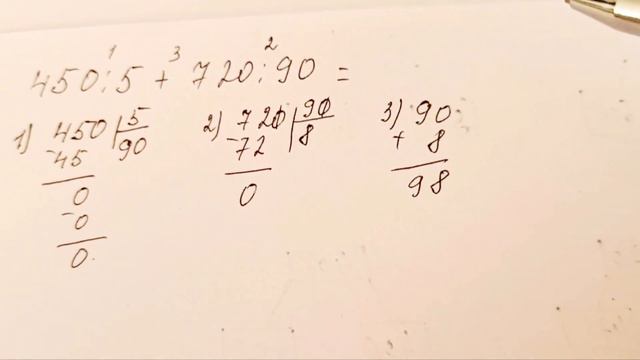 1 3 2
450:5+720:90=
1) 450 5 2) 720 90 3) 90
-45 90 -72 8 + 8
0 0 98
-0
0.